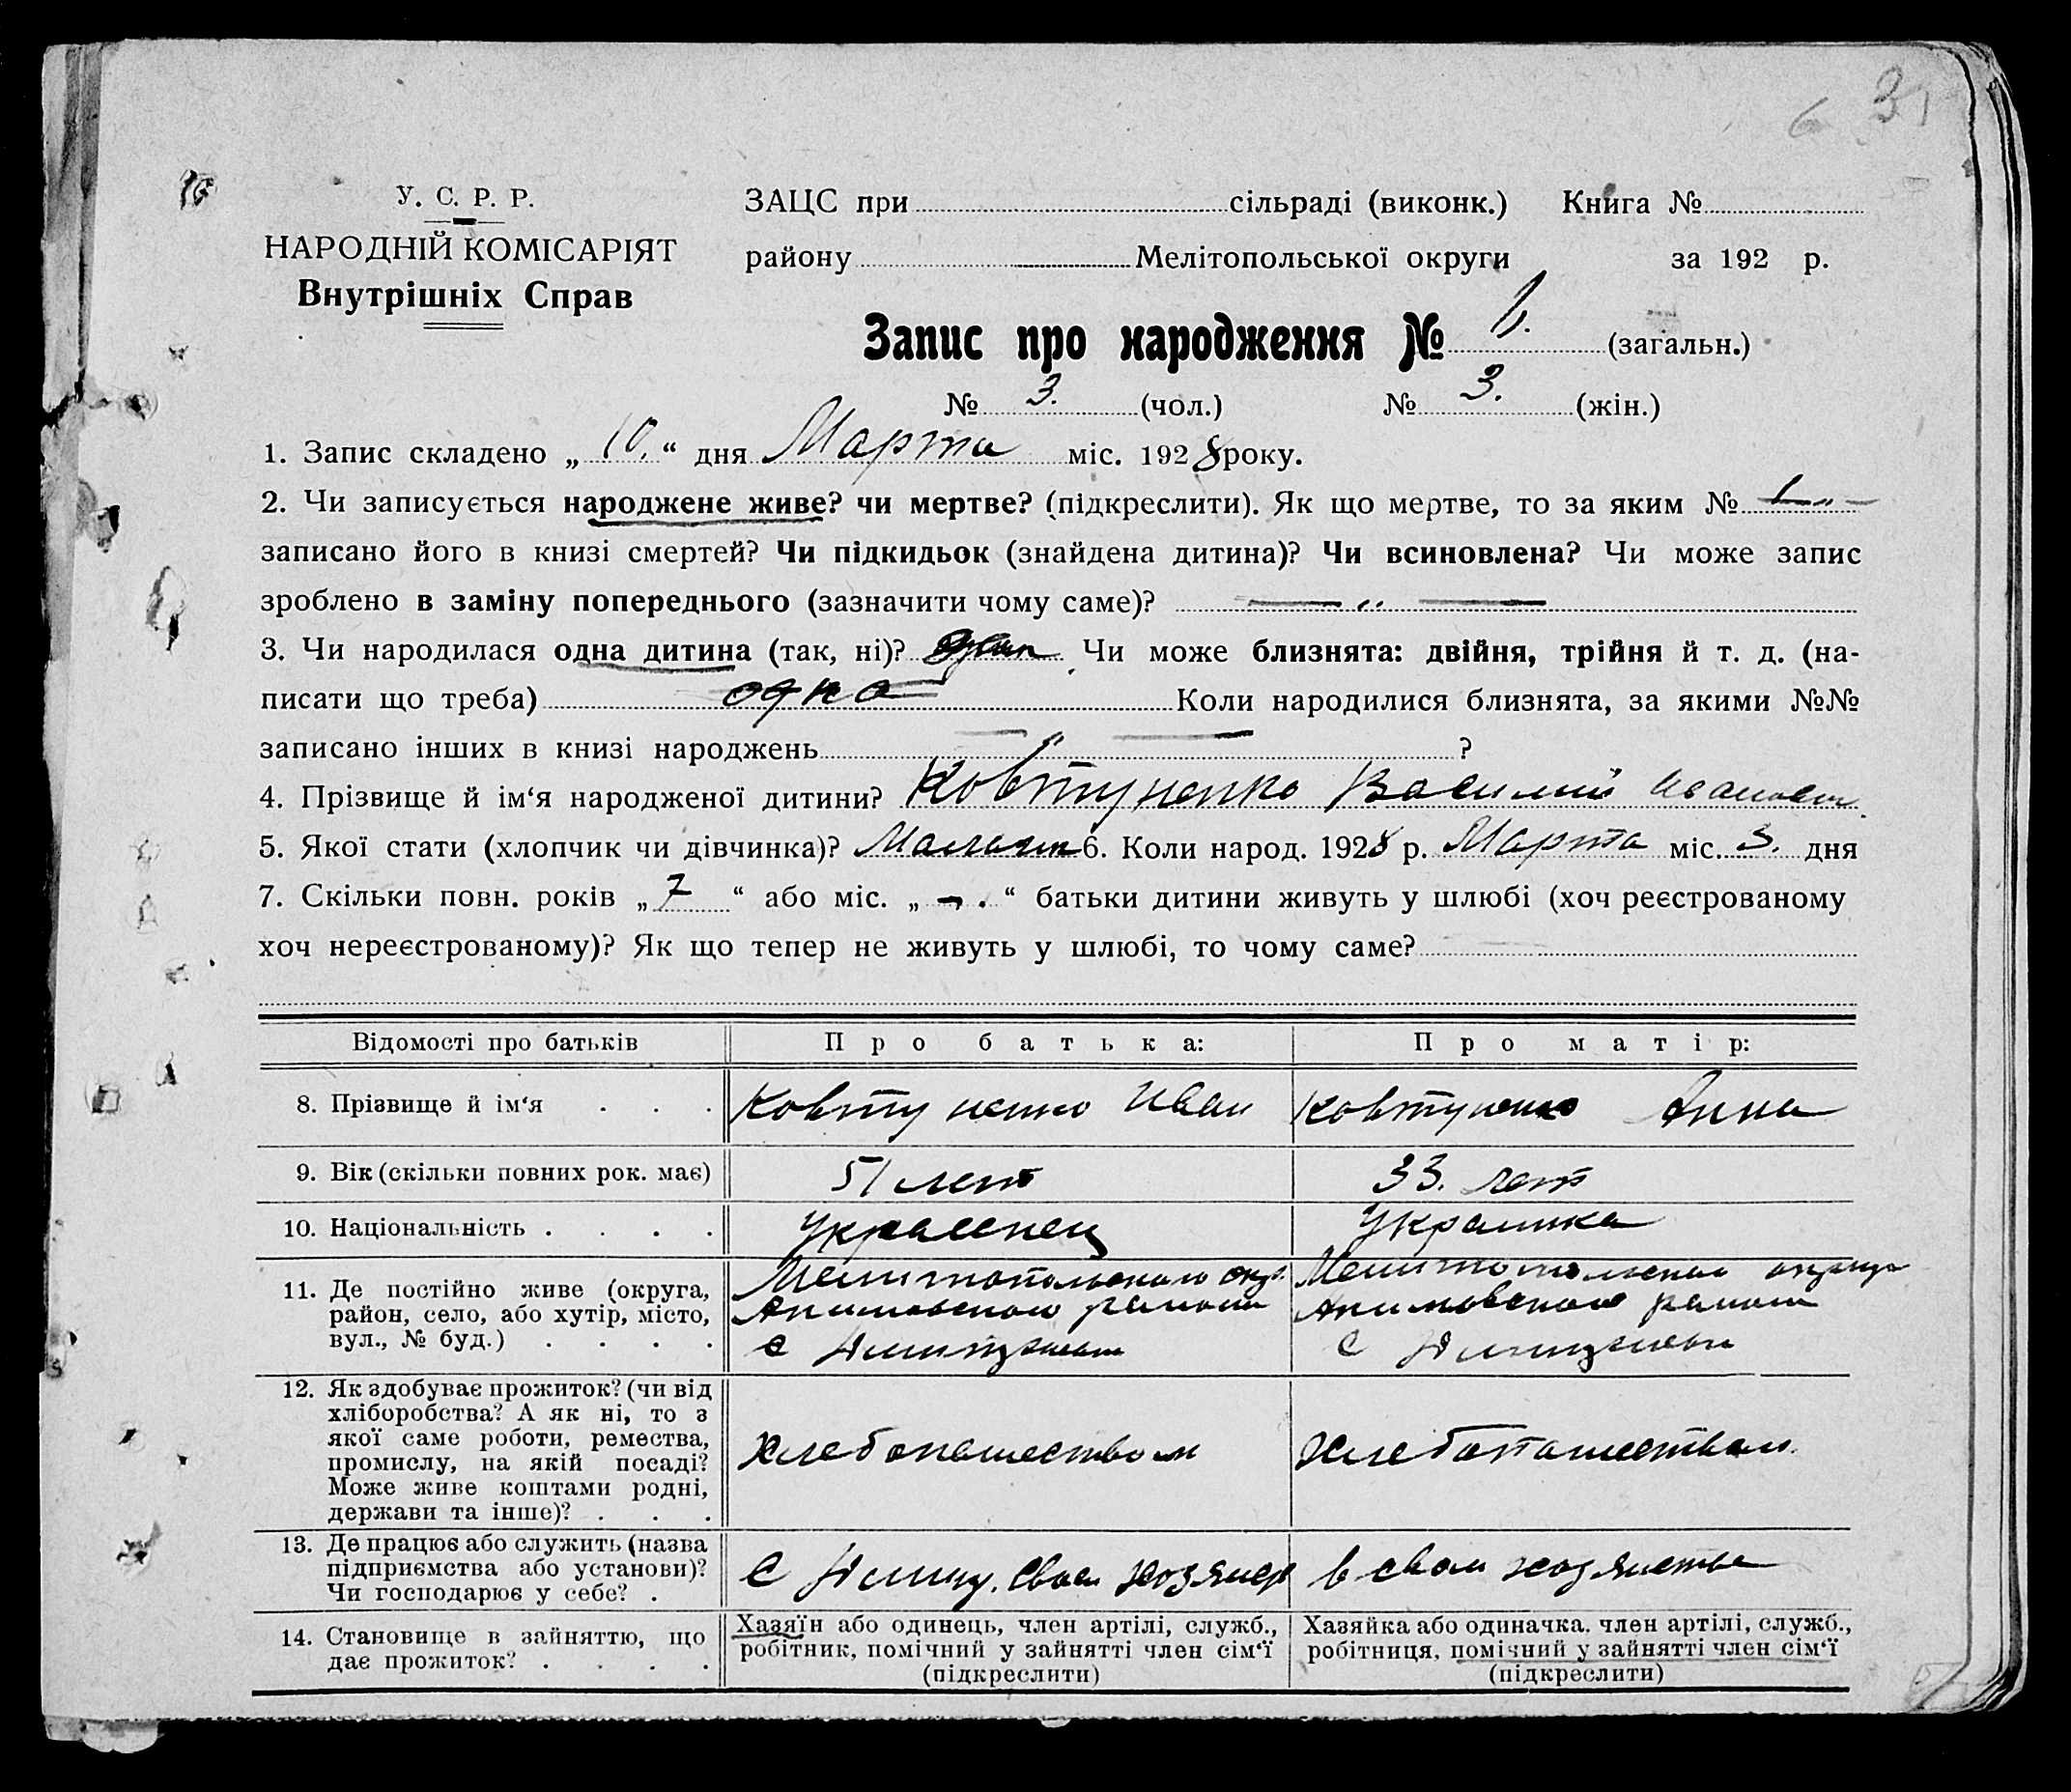 6 31
У. С. Р. Р.
НАРОДНІЙ КОМІСАРІЯТ
Внутрішніх Справ
ЗАЦС при сільраді (виконк.) Книга №
району Мелітопольської округи за 192 р.
Запис про народження № (загальн.)
№ 3. (чол.) № 3. (жін.)
1. Запис складено „ 10. “ дня Марта міс. 1928 року.
2. Чи записується народжене живе? чи мертве? (підкреслити). Як що мертве, то за яким №
записано його в книзі смертей? Чи підкидьок (знайдена дитина)? Чи всиновлена? Чи може запис
зроблено в заміну попереднього (зазначити чому саме)?
3. Чи народилася одна дитина (так, ні)? Чи може близнята: двійня, трійня й т. д. (на-
писати що треба) одна Коли народилися близнята, за якими №№
записано інших в книзі народжень ?
4. Прізвище й ім‘я народженої дитини? Ковтуненко Василий Иванович
5. Якої стати (хлопчик чи дівчинка)? 6. Коли народ. 1928 р. Марта міс. 3. дня
7. Скільки повн. років „ 7 “ або міс. „ “ батьки дитини живуть у шлюбі (хоч реєстрованому
хоч нереєстрованому)? Як що тепер не живуть у шлюбі, то чому саме?
Відомості про батьків Про батька: Про матір:
8. Прізвище й ім‘я . . . Ковтуненко Иван Ковтуненко Анна
9. Вік (скільки повних рок. має) 51 лет 33. лет
10. Національність . . . . Украинец Украинка
11. Де постійно живе (округа,
район, село, або хутір, місто,
вул., № буд.) . . . .
Мелитопольского окр.
Акимовского района
с
Мелитопольского округа
Акимовского района
с
12. Як здобуває прожиток? (чи від
хліборобства? А як ні, то з
якої саме роботи, ремества,
промислу, на якій посаді?
Може живе коштами родні,
держави та інше)? . . .
хлебопашеством
хлебопашеством
13. Де працює або служить (назва
підприємства або установи)?
Чи господарює у себе? .
с своем
в своем хозяйстве
14. Становище в зайняттю, що
дає прожиток? . . . .
Хазяїн або одинець, член артілі, служб.,
робітник, помічний у зайнятті член сім‘ї
(підкреслити)
Хазяйка або одиначка. член артілі, служб.,
робітниця, помічний у зайнятті член сім‘ї
(підкреслити)